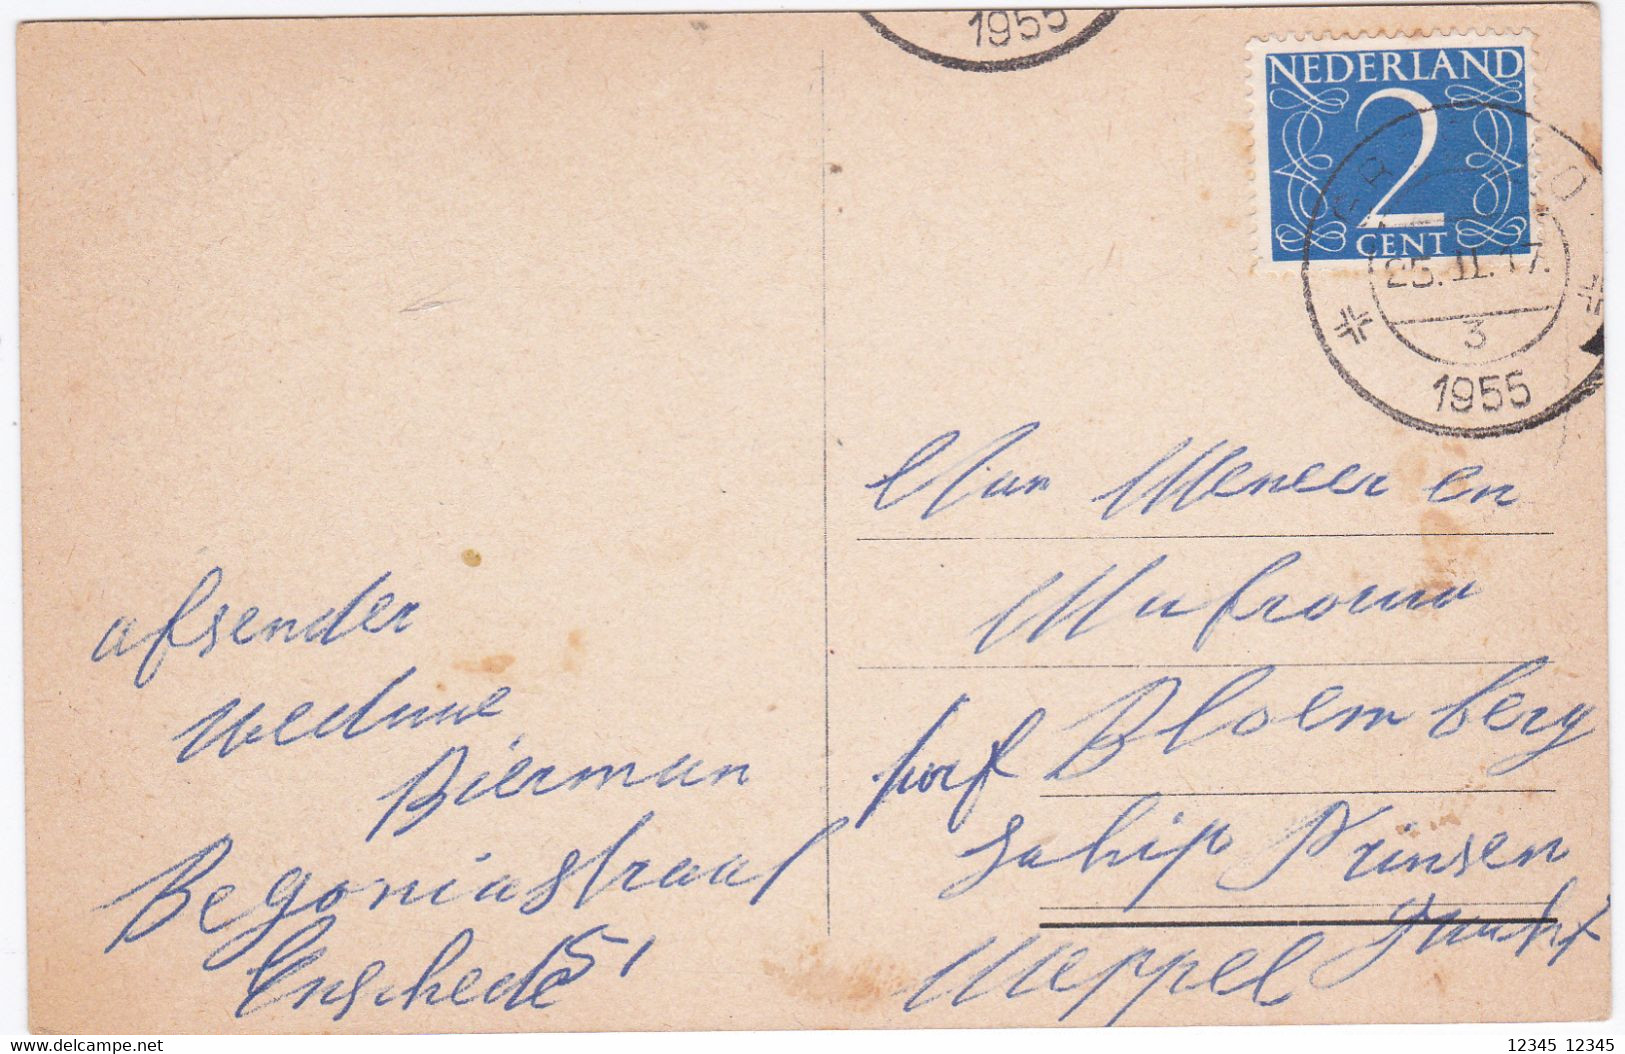 1955
NEDERLAND
2
CENT
25.II.17.
3
1955
Aan Meneer en
Mefrouw
Bloemberg
Schip Prinsen
Meppel
afsender
Weduwe
Bierman
Begoniastraat
51
Enschede
www.delcampe.net
12345 12345